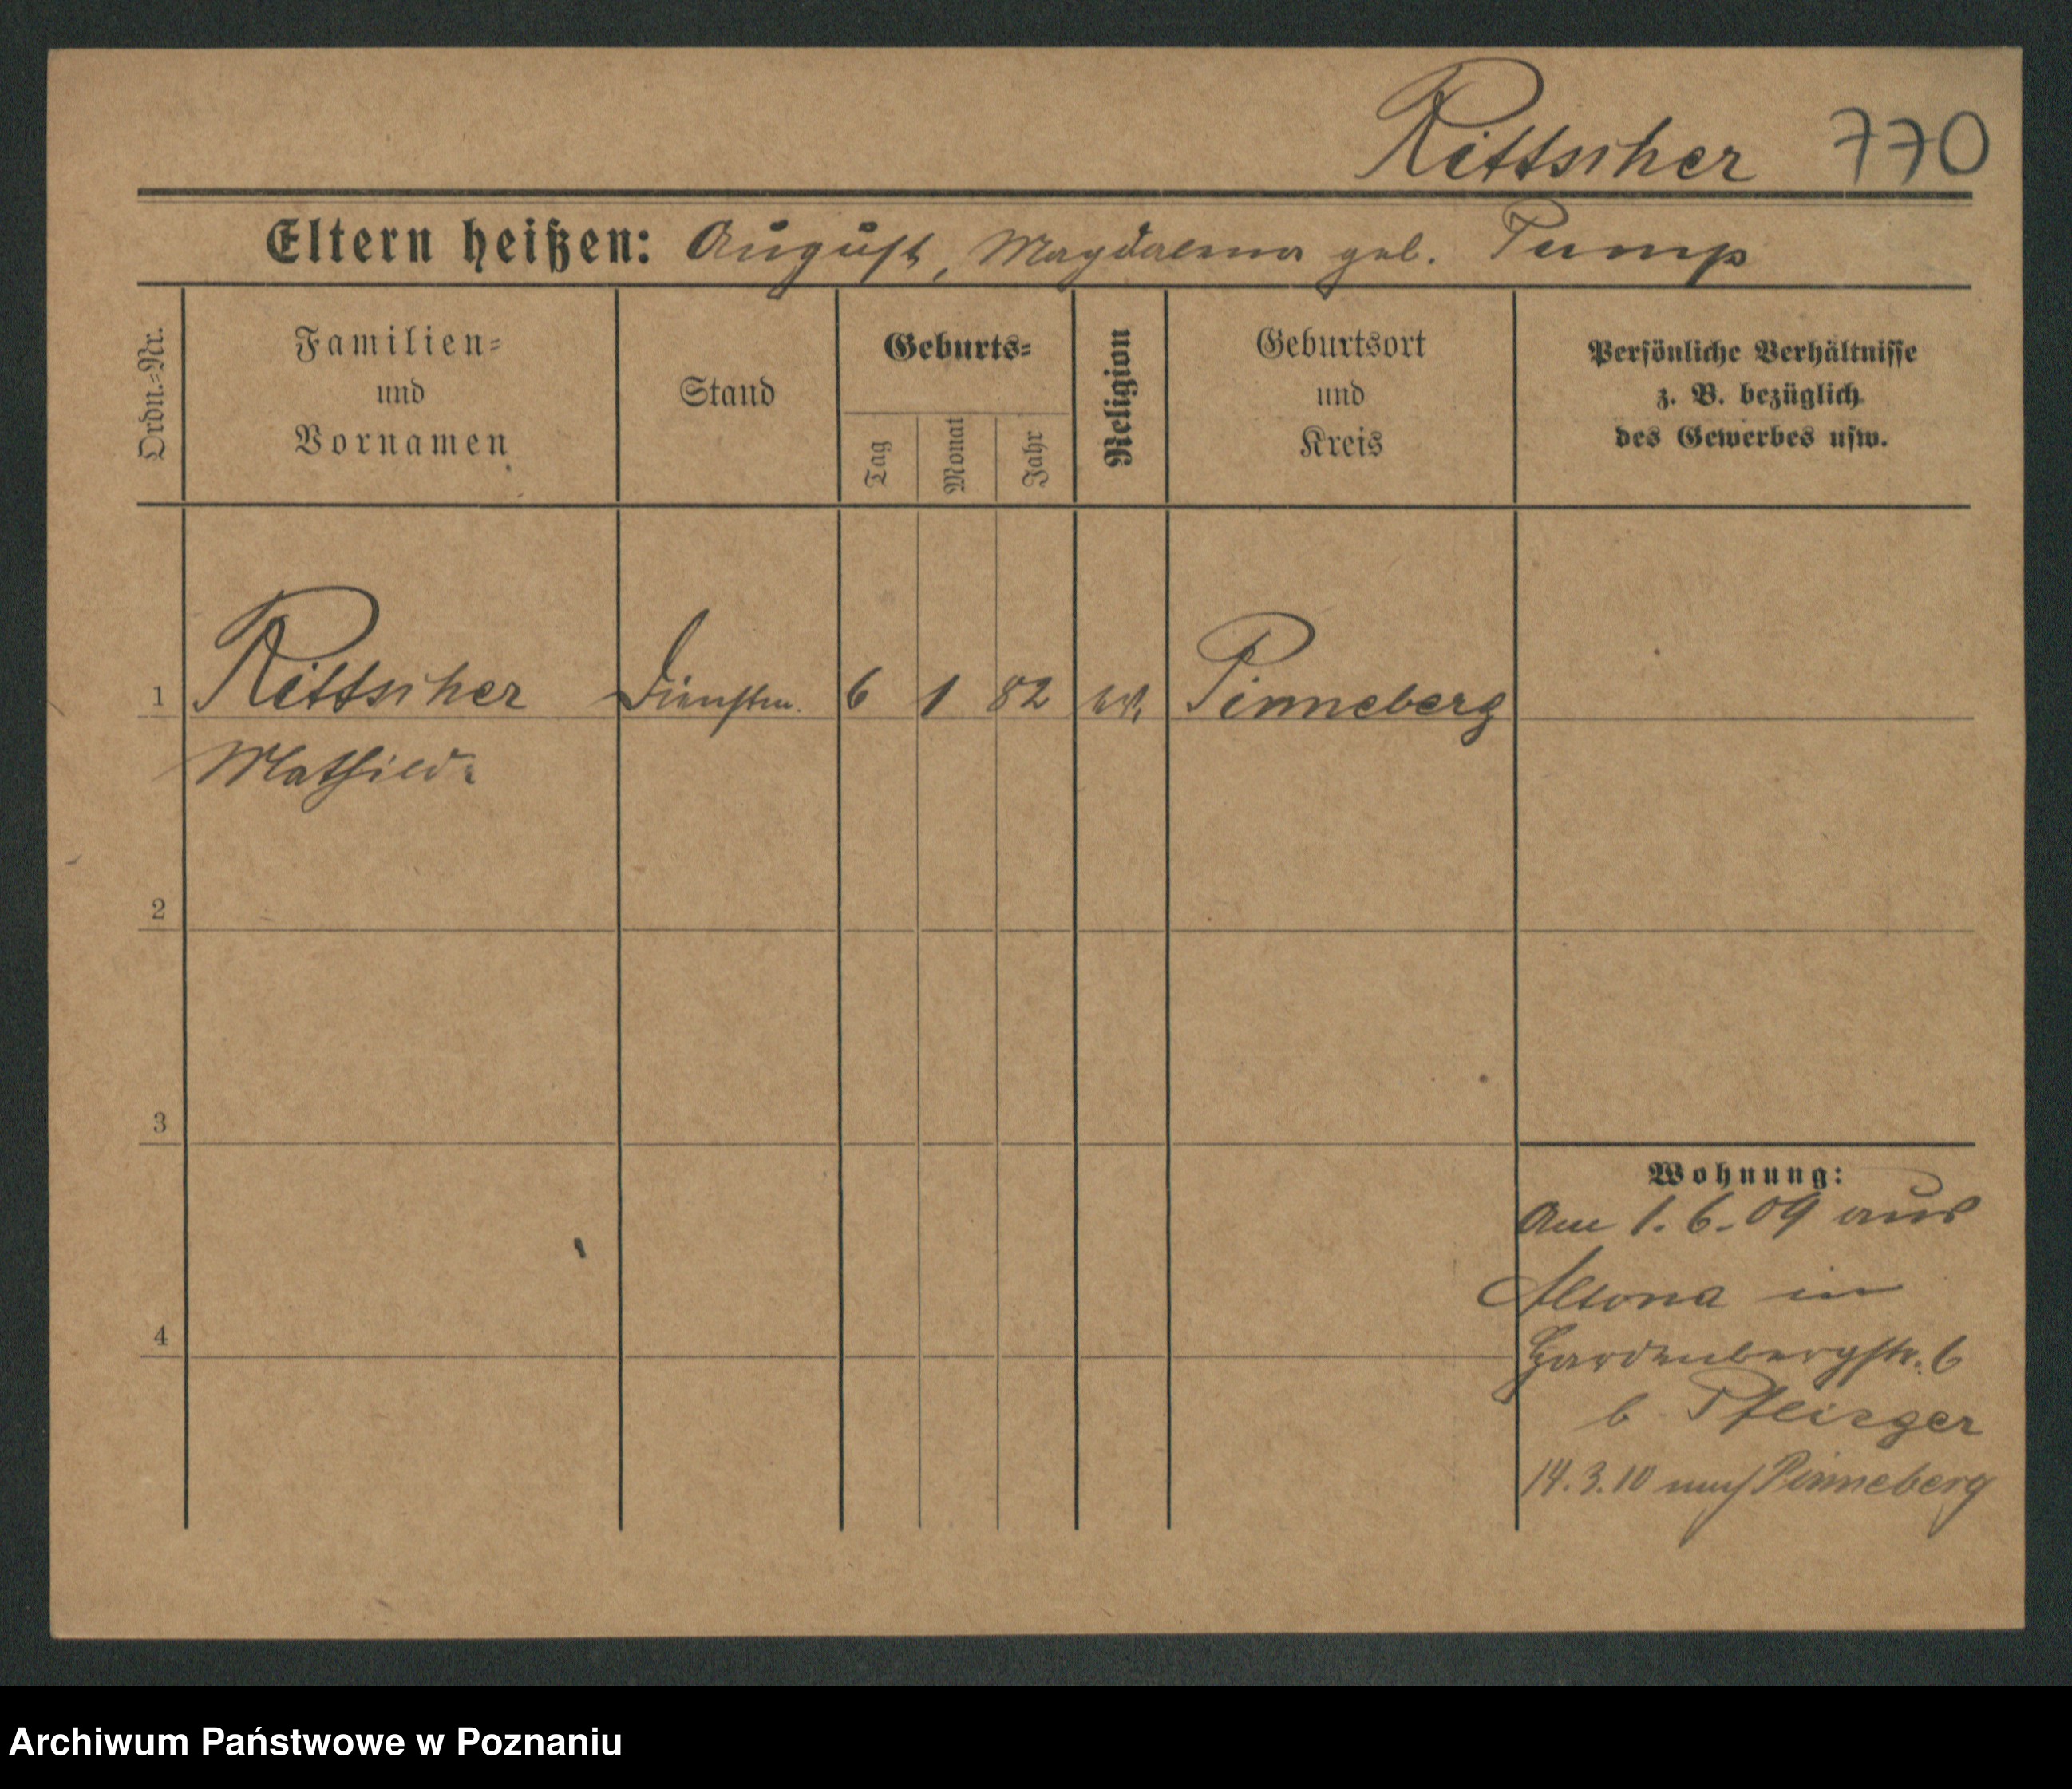 Rittscher 770
Eltern heißen: August, Magdalena geb. Pump
Ordn.-Nr.
Familien-
und
Vornamen
Stand
Geburts-
Tag
Monat
Jahr
Religion
Geburtsort
und
Kreis
Persönliche Verhältnisse
z. B. bezüglich
des Gewerbes usw.
1 Rittscher Dienstm. 6 1 82 Pinneberg
Mathilde
2
3
4
Wohnung:
Am 1.6.09 aus
Altona in
Hardenbergstr. 6
b Pflieger
14.3.10 nach Pinneberg
Archiwum Państwowe w Poznaniu